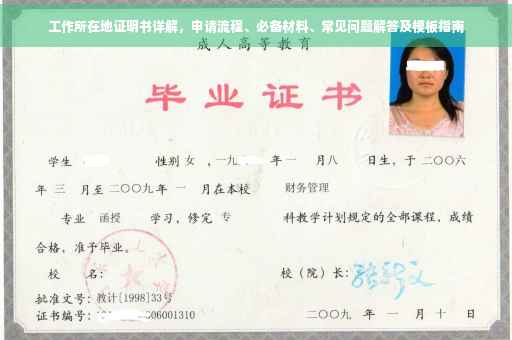 工作所在地证明书详解,申请流程、必备材料、常见问题解答及模板指南
成人高等教育
毕业证书
学生 性别 女 ,一九 年 一 月 八 日生,于 二〇〇六
年 三 月至 二〇〇九 年 一 月在本校 财务管理
专业 函授 学习,修完 专 科教学计划规定的全部课程,成绩
合格,准予毕业。
校 名: 校(院)长:
批准文号:教计[1998]33号
证书编号: 06001310 二〇〇九 年 一 月 十 日